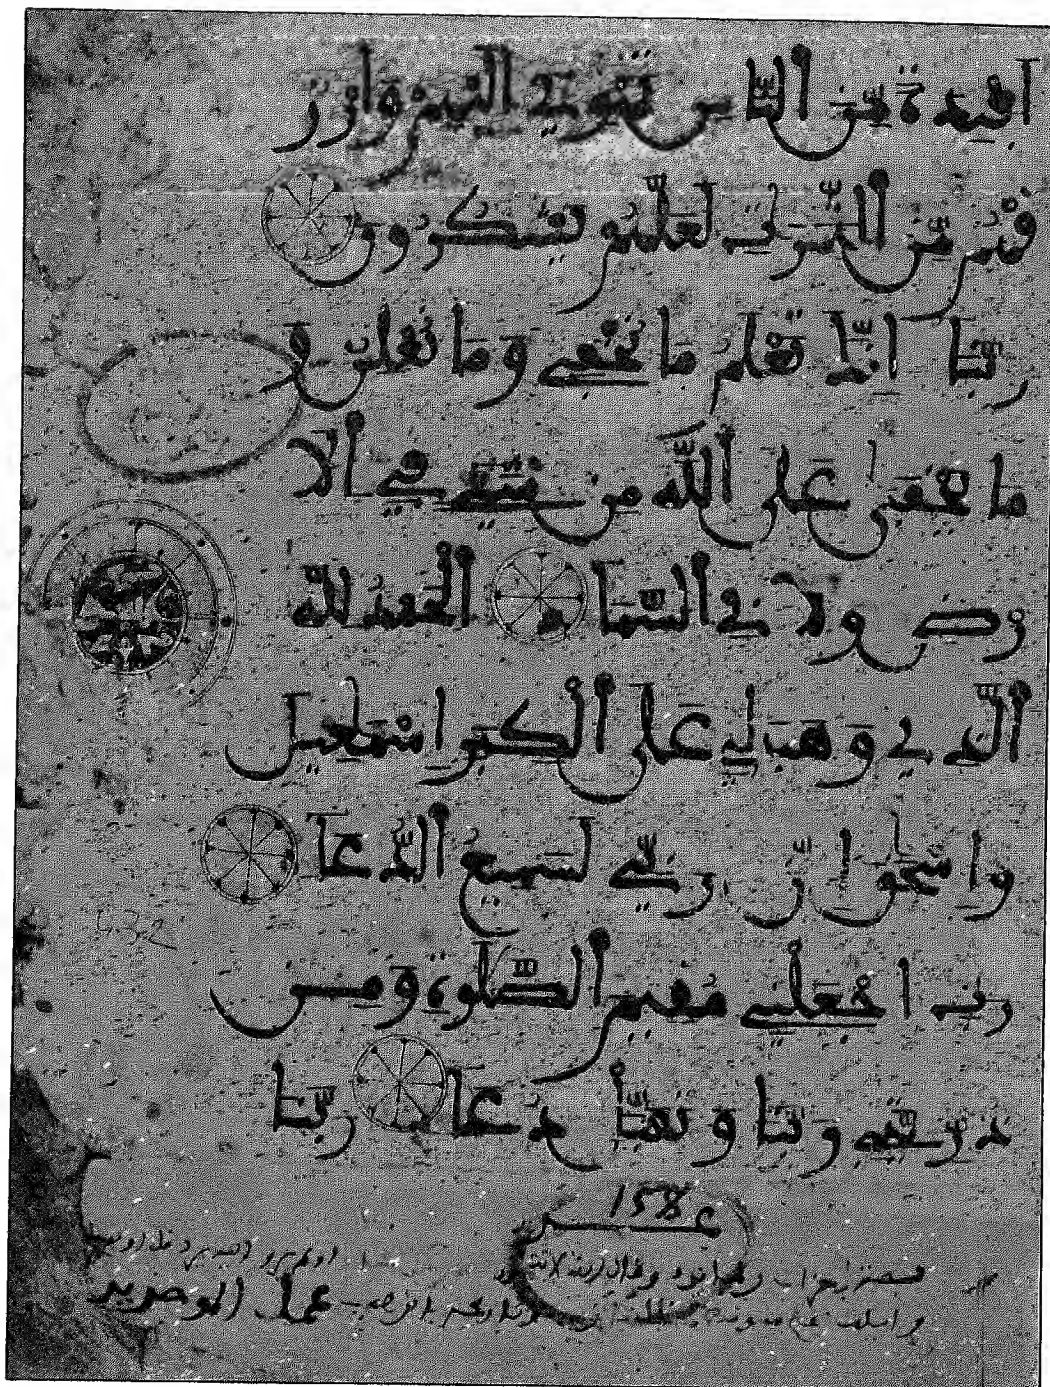 أفئدة من الناس تهوي إليهم وارز
قهم من الثمرت لعلهم يشكرون
ربنا إنك تعلم ما نخفي وما نعلن و
ما يخفى على الله من شيء في الا
رض ولا في السما الحمد لله
الذي وهب لي على الكبر إسمعيل
وإسحق إن ربي لسميع الدعا
رب اجعلني مقيم الصلوة ومن
ذريتي ربنا وتقبل دعا ربنا
158
عمل الموحدين